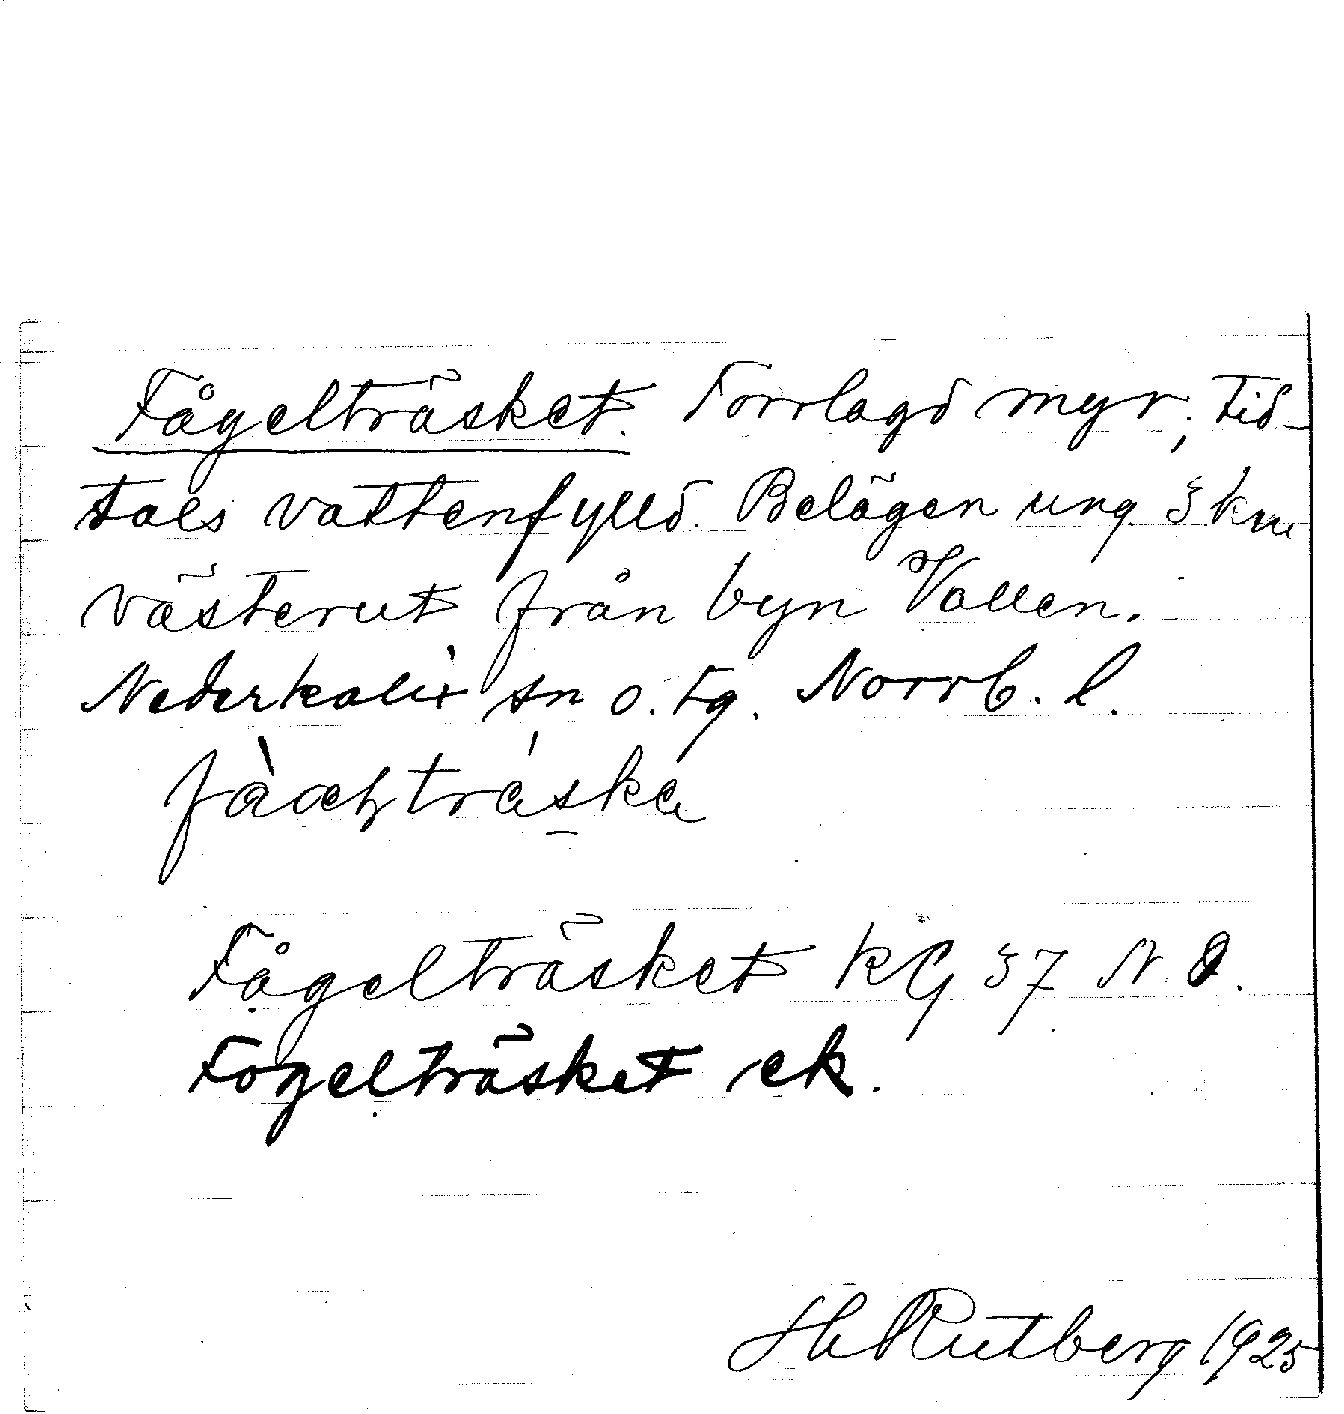 Fågelträsket. Torrlagd myr, tid-
tals vattenfylld. Belägen ung 3 km
västerut från byn Vallen.
Nederkalix sn o. tg. Norrb. l.
Fågelträsket KG 37 N. O.
Fogelträsket ek.
H Rutberg 1925